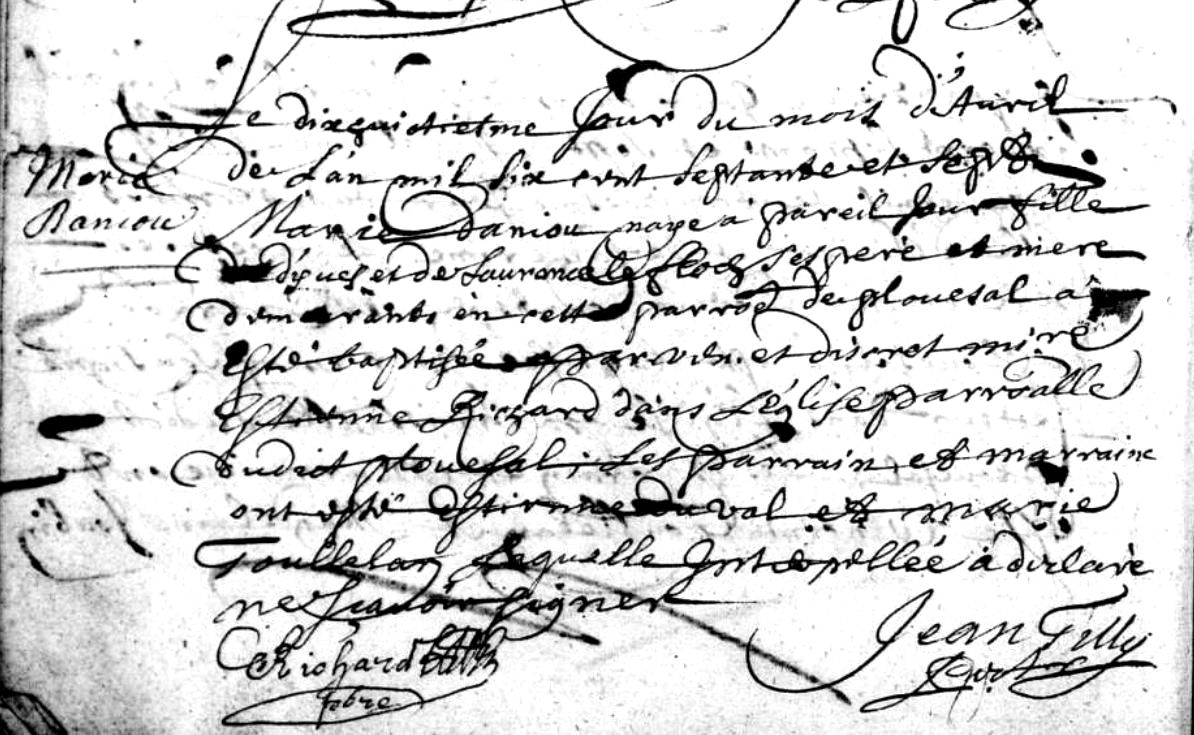 Marie
Daniou
Le dixhuictiesme Jour du mois d'Auril
de L'an mil six cent septante et sept
Marie Daniou naye a pareil Jour fille
d'yues et de Laurence le floch ses pere et mere
demeurants en cette parroe de plouesal a
Esté baptisée par ven. et discret m.re
Estienne Richard dans L'église parroialle
dudict plouesal, Les parrain et marraine
ont esté Estienne du val et marie
Toullelan Lequelle Interpellée a declaré
ne scavoir signer
Jean Tilly
Richard
pbre